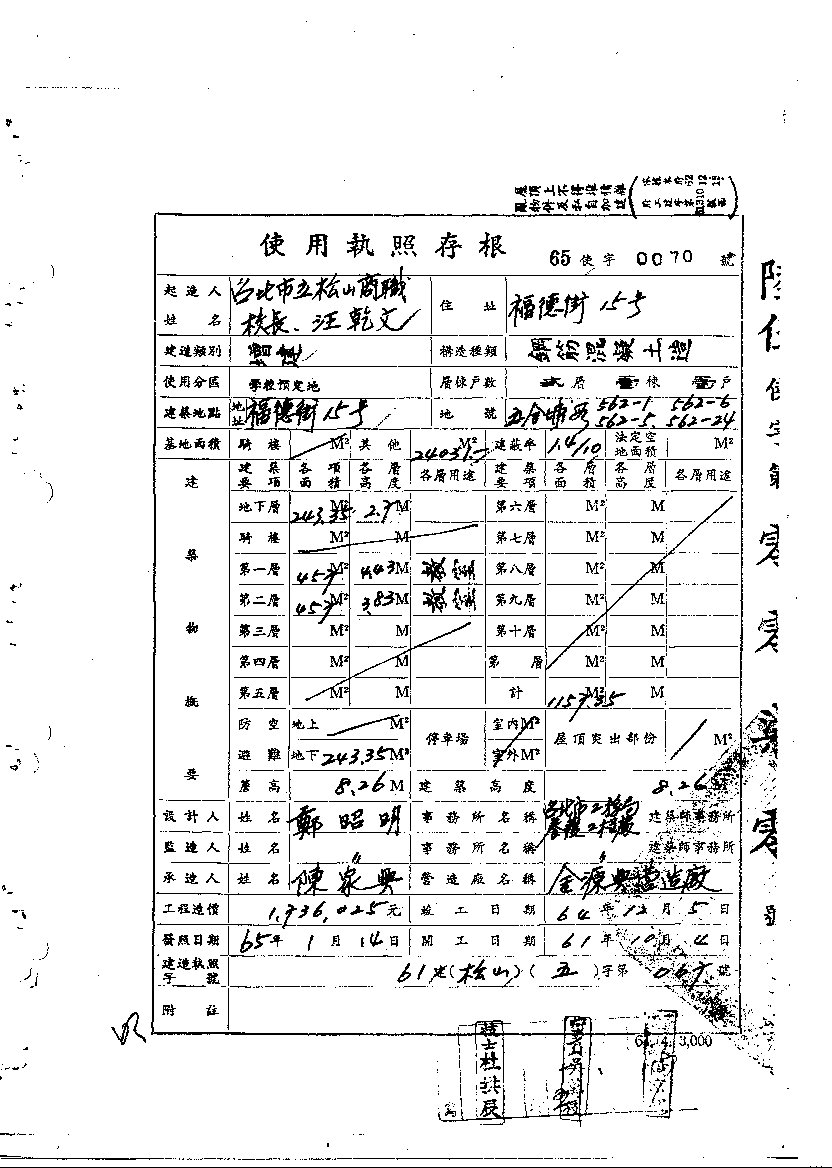 屋頂上不得堆積雜
亂物件及私自加建
使用執照存根 65 使字 0070 號
起造人 姓名 台北市立松山商職 校長、汪乾文 住址 福德街15号
建造類別 增建 構造種類 鋼筋混凝土造
使用分區 學校預定地 層棟戶數 層 棟 戶
建築地點 地址 福德街15号 地號 562-1 562-6 562-5 562-24
基地面積 騎樓 M² 其他 M² 建蔽率 1.4/10 法定空地面積 M²
建築物概要
建築要項 各項面積 各層高度 各層用途 建築要項 各層面積 各層高度 各層用途
地下層 243.35 M² 2.7 M 第六層 M² M
騎樓 M² M 第七層 M² M
第一層 457 M² 4.43 M 第八層 M² M
第二層 457 M² 3.83 M 第九層 M² M
第三層 M² M 第十層 M² M
第四層 M² M 第 層 M² M
第五層 M² M 計 1157.35 M²
防空避難 地上 M² 停車場 室內 M² 屋頂突出部份 M²
地下 243.35 M² 室外 M²
簷高 8.26 M 建築高度 8.26 M
設計人 姓名 鄭昭明 事務所名稱 台北市工務局養護工程處 建築師事務所
監造人 姓名 〃 事務所名稱 〃 建築師事務所
承造人 姓名 陳家興 營造廠名稱 金源興營造廠
工程造價 1,736,025 元 竣工日期 64年12月5日
發照日期 65年1月14日 開工日期 61年10月4日
建造執照字號 61 (松山)(五)字第 067 號
附註
3,000
技士杜洪辰